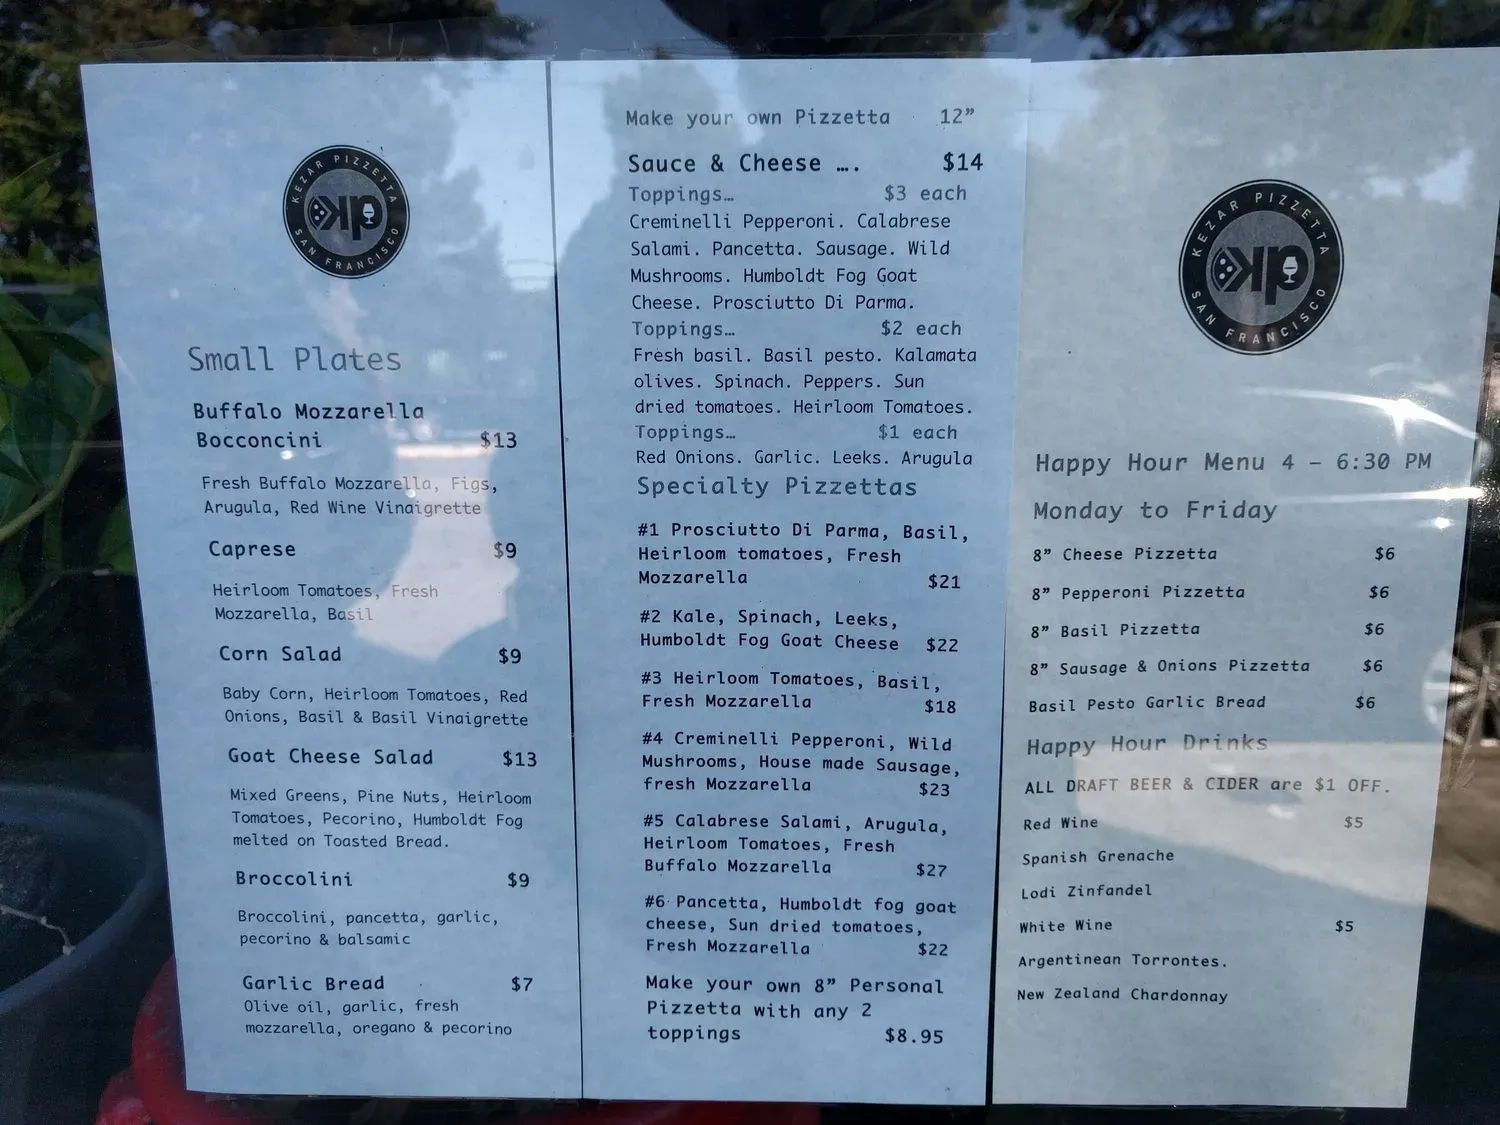 KEZAR PIZZETTA
SAN FRANCISCO
Small Plates
Buffalo Mozzarella
Bocconcini $13
Fresh Buffalo Mozzarella, Figs,
Arugula, Red Wine Vinaigrette
Caprese $9
Heirloom Tomatoes, Fresh
Mozzarella, Basil
Corn Salad $9
Baby Corn, Heirloom Tomatoes, Red
Onions, Basil & Basil Vinaigrette
Goat Cheese Salad $13
Mixed Greens, Pine Nuts, Heirloom
Tomatoes, Pecorino, Humboldt Fog
melted on Toasted Bread.
Broccolini $9
Broccolini, pancetta, garlic,
pecorino & balsamic
Garlic Bread $7
Olive oil, garlic, fresh
mozzarella, oregano & pecorino
Make your own Pizzetta 12”
Sauce & Cheese …. $14
Toppings… $3 each
Creminelli Pepperoni. Calabrese
Salami. Pancetta. Sausage. Wild
Mushrooms. Humboldt Fog Goat
Cheese. Prosciutto Di Parma.
Toppings… $2 each
Fresh basil. Basil pesto. Kalamata
olives. Spinach. Peppers. Sun
dried tomatoes. Heirloom Tomatoes.
Toppings… $1 each
Red Onions. Garlic. Leeks. Arugula
Specialty Pizzettas
#1 Prosciutto Di Parma, Basil,
Heirloom tomatoes, Fresh
Mozzarella $21
#2 Kale, Spinach, Leeks,
Humboldt Fog Goat Cheese $22
#3 Heirloom Tomatoes, Basil,
Fresh Mozzarella $18
#4 Creminelli Pepperoni, Wild
Mushrooms, House made Sausage,
fresh Mozzarella $23
#5 Calabrese Salami, Arugula,
Heirloom Tomatoes, Fresh
Buffalo Mozzarella $27
#6 Pancetta, Humboldt fog goat
cheese, Sun dried tomatoes,
Fresh Mozzarella $22
Make your own 8” Personal
Pizzetta with any 2
toppings $8.95
KEZAR PIZZETTA
SAN FRANCISCO
Happy Hour Menu 4 – 6:30 PM
Monday to Friday
8” Cheese Pizzetta $6
8” Pepperoni Pizzetta $6
8” Basil Pizzetta $6
8” Sausage & Onions Pizzetta $6
Basil Pesto Garlic Bread $6
Happy Hour Drinks
ALL DRAFT BEER & CIDER are $1 OFF.
Red Wine $5
Spanish Grenache
Lodi Zinfandel
White Wine $5
Argentinean Torrontes.
New Zealand Chardonnay